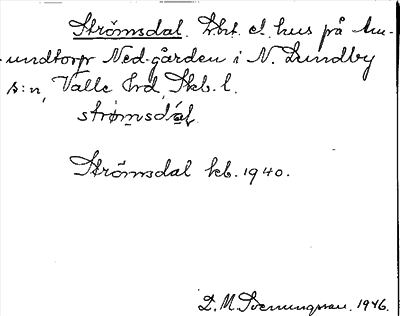 Strömsdal. Lht. el. hus på Am-
undtorp Ned-gården i N. Lundby
s:n, Valle hrd, Skb. l.
strømsdál
Strömsdal kb. 1940.
D. M. Svenungsson. 1946.